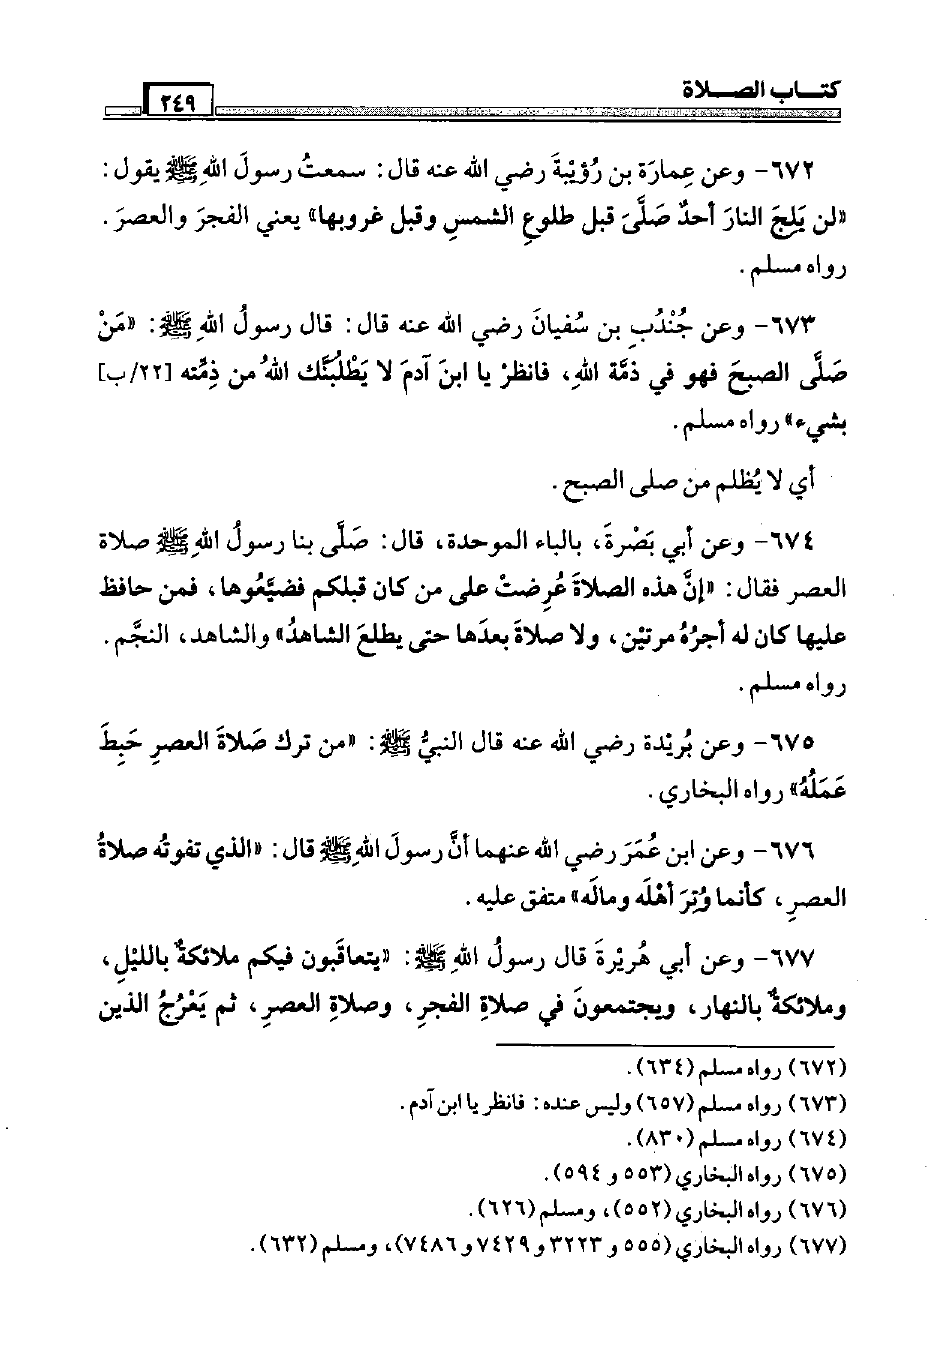 كتـــاب الصـــلاة
٢٤٩
٦٧٢- وعن عِمارَة بن رُؤَيْبةَ رضي الله عنه قال: سمعتُ رسولَ اللهِ ﷺ يقول:
«لن يَلِجَ النارَ أحدٌ صَلَّىَ قبل طلوعِ الشمسِ وقبل غروبها» يعني الفجرَ والعصرَ.
رواه مسلم.
٦٧٣- وعن جُنْدُبِ بن سُفيانَ رضي الله عنه قال: قال رسولُ اللهِ ﷺ: «مَنْ
صَلَّى الصبحَ فهو في ذمَّة اللهِ، فانظرْ يا ابنَ آدمَ لا يَطْلُبَنَّك اللهُ من ذِمَّته [٢٢/ب]
بشيء» رواه مسلم.
أي لا يُظلم من صلى الصبح.
٦٧٤- وعن أبي بَصْرةَ، بالباء الموحدة، قال: صَلَّى بنا رسولُ اللهِ ﷺ صلاة
العصر فقال: «إنَّ هذه الصلاةَ عُرِضتْ على من كان قبلكم فضيَّعُوها، فمن حافظ
عليها كان له أجرُهُ مرتيْن، ولا صلاةَ بعدَها حتى يطلعَ الشاهدُ» والشاهد، النجَّم.
رواه مسلم.
٦٧٥- وعن بُريْدة رضي الله عنه قال النبيُّ ﷺ: «من ترك صَلاةَ العصرِ حَبِطَ
عَمَلُهُ» رواه البخاري.
٦٧٦- وعن ابن عُمَرَ رضي الله عنهما أنَّ رسولَ اللهِ ﷺ قال: «الذي تفوتُه صلاةُ
العصرِ، كأنما وُتِرَ أهْلَه ومالَه» متفق عليه.
٦٧٧- وعن أبي هُريْرةَ قال رسولُ اللهِ ﷺ: «يتعاقَبون فيكم ملائكةٌ بالليْلِ،
وملائكةٌ بالنهار، ويجتمعونَ في صلاةِ الفجرِ، وصلاةِ العصرِ، ثم يَعْرُجُ الذين
(٦٧٢) رواه مسلم (٦٣٤).
(٦٧٣) رواه مسلم (٦٥٧) وليس عنده: فانظر يا ابن آدم.
(٦٧٤) رواه مسلم (٨٣٠).
(٦٧٥) رواه البخاري (٥٥٣ و ٥٩٤).
(٦٧٦) رواه البخاري (٥٥٢)، ومسلم (٦٢٦).
(٦٧٧) رواه البخاري (٥٥٥ و ٣٢٢٣ و ٧٤٢٩ و ٧٤٨٦)، ومسلم (٦٣٢).